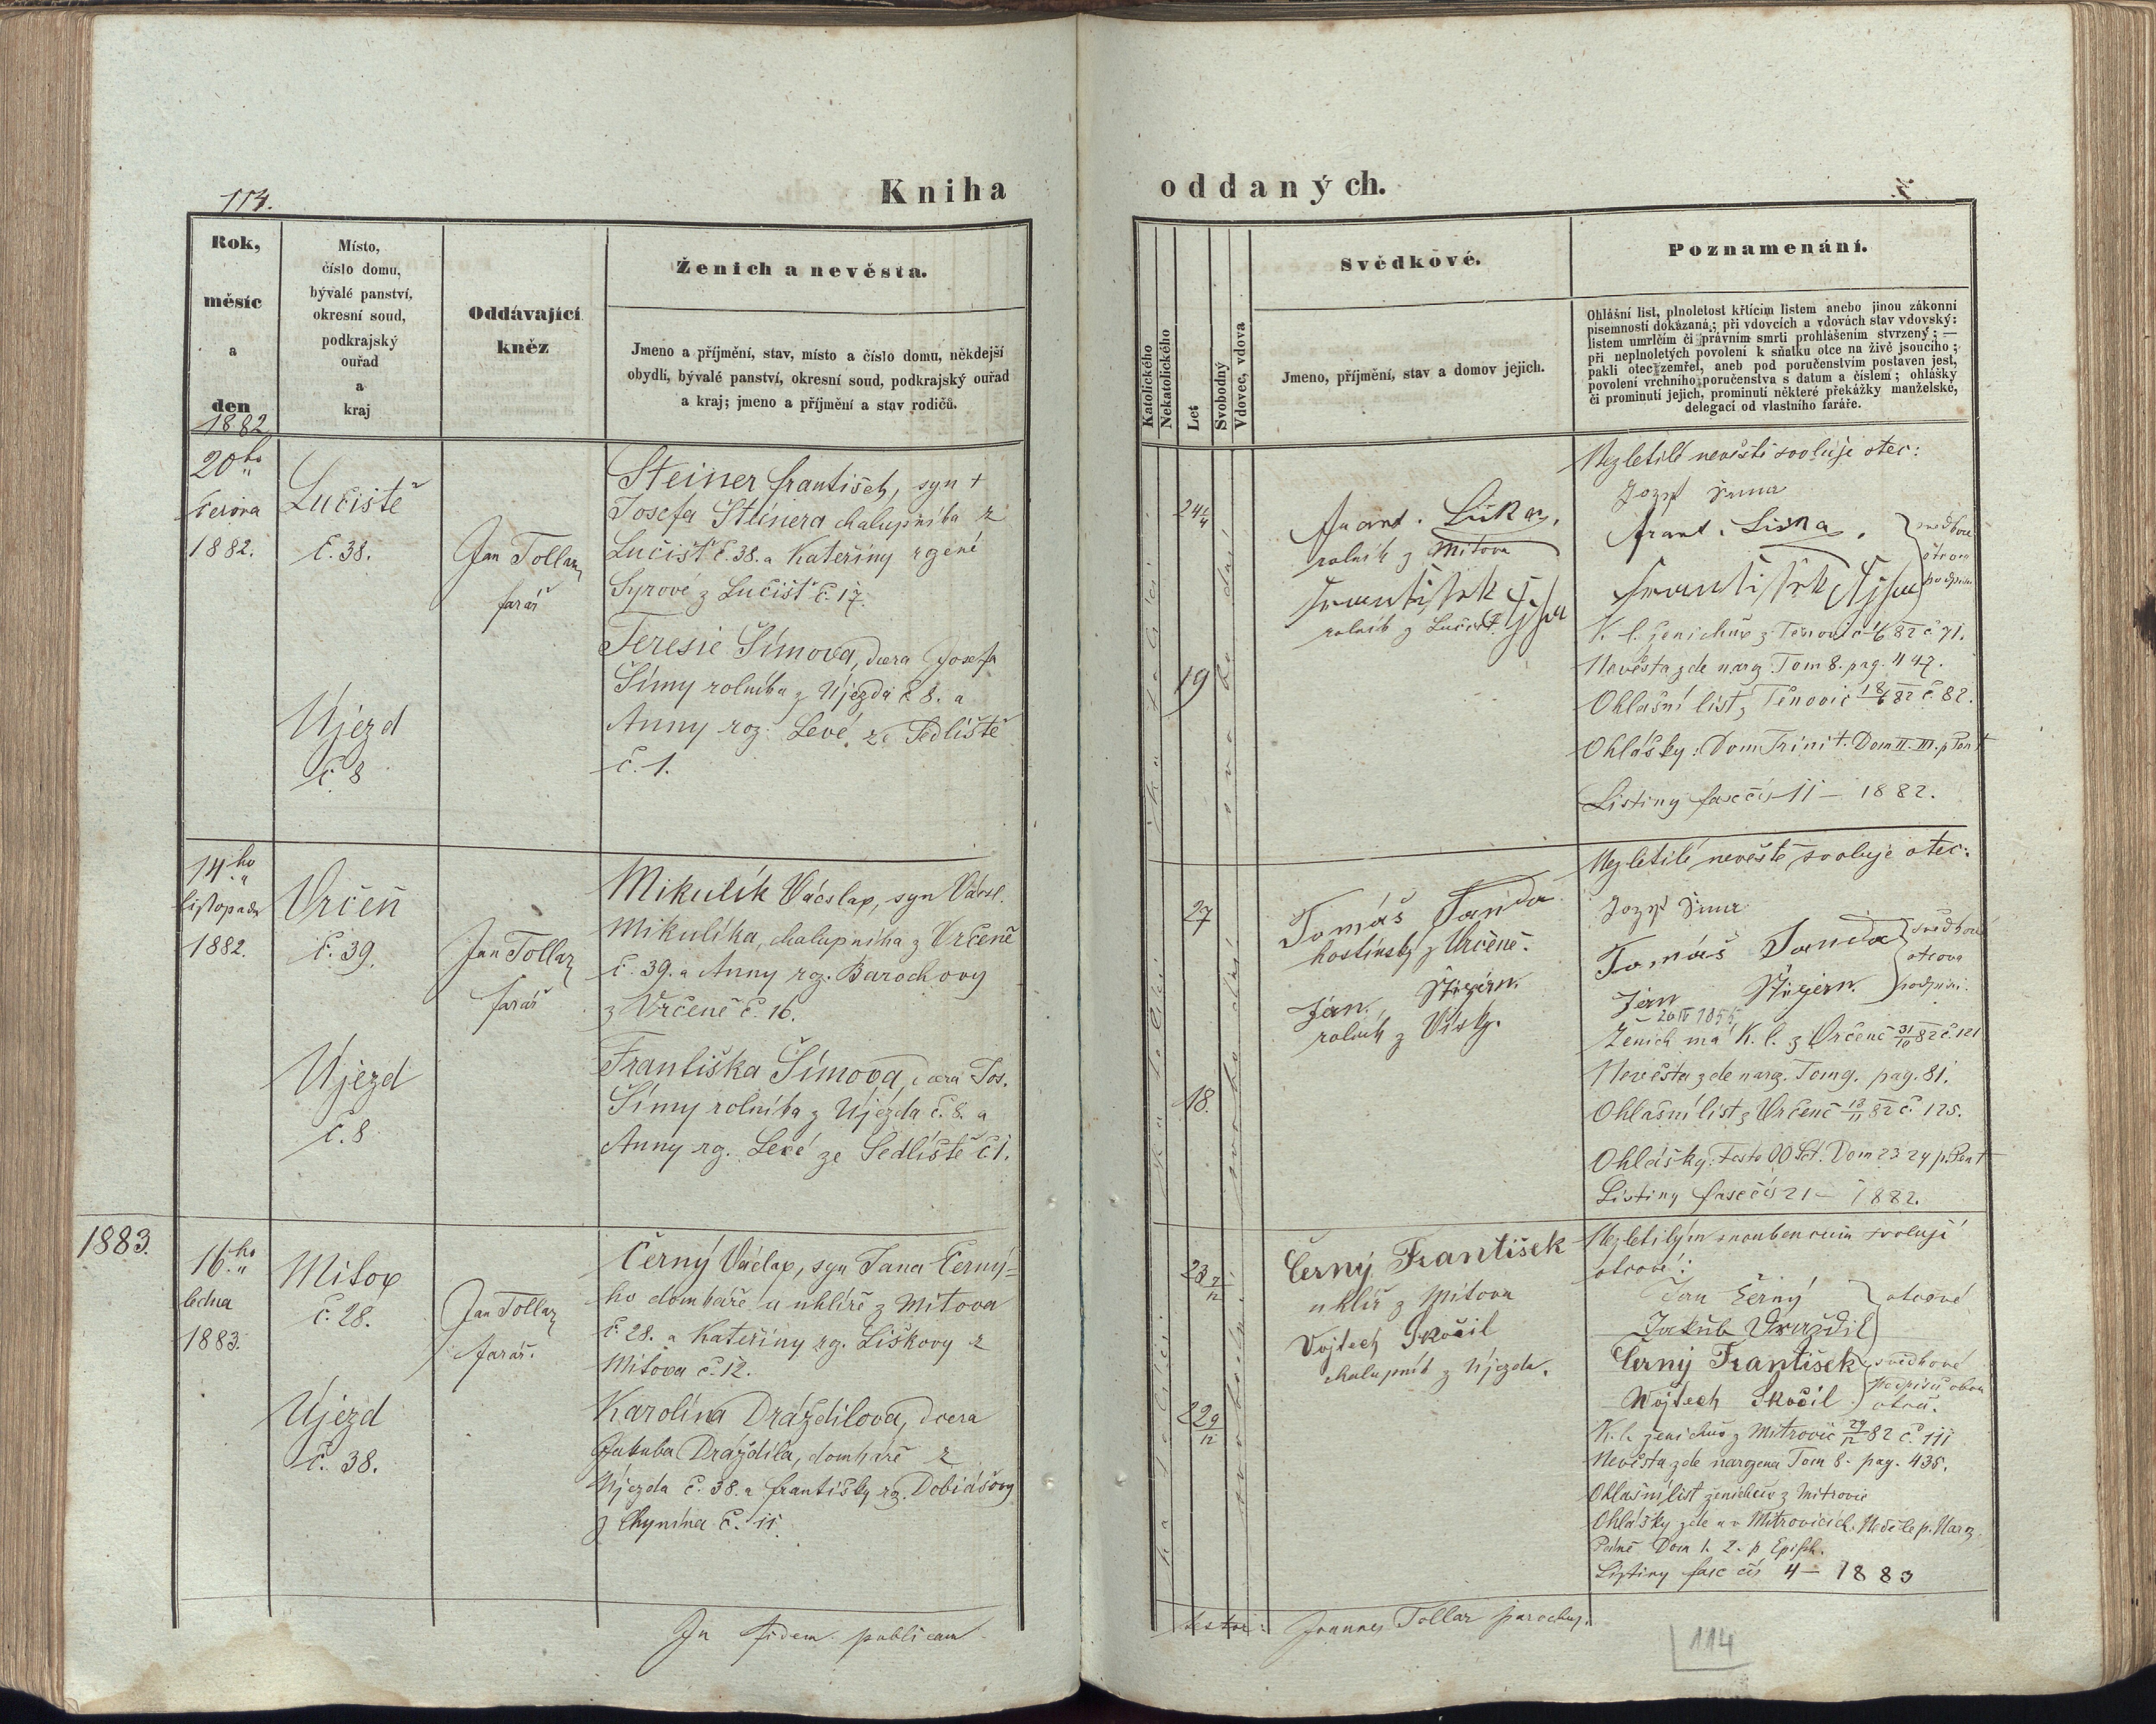 114.
Kniha
oddaných.
Rok,
měsíc
a
den
1882
Místo,
číslo domu,
bývalé panství,
okresní soud,
podkrajský
ouřad
a
kraj
Oddávající
kněz
Ženich a nevěsta.
Jmeno a příjmění, stav, místo a číslo domu, někdejší
obydlí, bývalé panství, okresní soud, podkrajský ouřad
a kraj; jmeno a příjmění a stav rodičů.
Katolického
Nekatolického
Let
Svobodný
Vdovec, vdova
Svědkové.
Jmeno, příjmění, stav a domov jejich.
Poznamenání.
Ohlášní list, plnoletost křtícím listem anebo jinou zákonní
písemností dokázaná; při vdovcích a vdovách stav vdovský:
listem umrlčím či právním smrti prohlášením stvrzený; —
při neplnoletých povolení k sňatku otce na živě jsoucího;
pakli otec zemřel, aneb pod poručenstvím postaven jest,
povolení vrchního poručenstva s datum a číslem; ohlášky
či prominutí jejich, prominutí některé překážky manželské,
delegací od vlastního faráře.
20ho
června
1882.
Lučiště
č. 38.
Újezd
č. 8
Jan Tollar
farář
Steiner František, syn +
Josefa Steinera chalupníka z
Lučišť č. 38. a Kateřiny rozené
Syrové z Lučišť č. 17.
Teresie Šímova, dcera Josefa
Šímy rolníka z Újezda č 8. a
Anny roz. Levé ze Sedliště
č. 1.
katolické
24
19
svobodní
rolník z Mítova
František
rolník z Lučišt.
Nezletilé nevěstě svoluje otec:
Jozef
Frant.
svědkové
otcova
podpisu
František
K. l. ženichův z 82 č 71.
Nevěsta zde naroz. Tom 8. pag. 447.
Ohlašní list z Těnovic 18/6 82 č. 82.
Ohlášky: Dom Trinit. Dom II. III. p Pent
Listiny fasc čís 11 – 1882.
14.ho
listopadu
1882.
Vrčeň
č. 39.
Újezd
č. 8
Jan Tollar
farář
Mikulík Václav, syn Václ.
Mikulíka, chalupníka z Vrčeně
č. 39. a Anny roz. Barochovy
z Vrčeně č. 16.
Františka Šímova, dcera Jos.
Šímy rolníka z Újezda č. 8. a
Anny rz. Levé ze Sedliště č 1.
katolické
27
18.
svobodní
Tomáš
hostinský z Vrčeně.
Jan
rolník z Vísky.
Nezletilé nevěstě svoluje otec:
Jozef
Tomáš
svědkové
otcova
podpisu.
Jan
Ženich má K. l. z Vrčeně 31/10 82 č. 121
Nevěsta zde naroz. Tom 9. pag. 81.
Ohlašní list z Vrčeně 82 č. 125.
Ohlášky: Festo OO Sct. Dom 23 24 p. Pent
Listiny fasc čís 21 – 1882.
1883.
16.ho
ledna
1883.
Mítov
č. 28.
Újezd
č. 38.
Jan Tollar
farář.
Černý Václav, syn Jana Černý=
ho domkáře a uhlíře z Mítova
č. 28. a Kateřiny rz. Liškovy z
Mítova č. 12.
Karolína Drázdilova, dcera
Jakuba Drázdila, domkáře z
Újezda č. 38. a Františky rz. Dobiášovy
z Chynína č. 11.
katolické
23
22
svobodní
Černý František
uhlíř z Mítova
Vojtech Skočil
chalupník z Újezda.
Nezletilým snoubencům svolují
otcové:
Jan Černý
Jakub Drazdil
otcové
Černý František
Wojtech Skočil
svědkové
podpisů obou
otců.
K. l. ženichův z Mitrovic 29/12 82 č. 111
Nevěsta zde narozena Tom 8. pag. 435.
Ohlašní list ženichův z Mitrovic
Ohlášky zde a v Mitrovicích. Neděle p. Naroz.
Páně Dom 1. 2. p Epiph.
Listiny fasc čís 4 – 1883
In fidem publicam
testor: Joannes Tollar parochus.
114